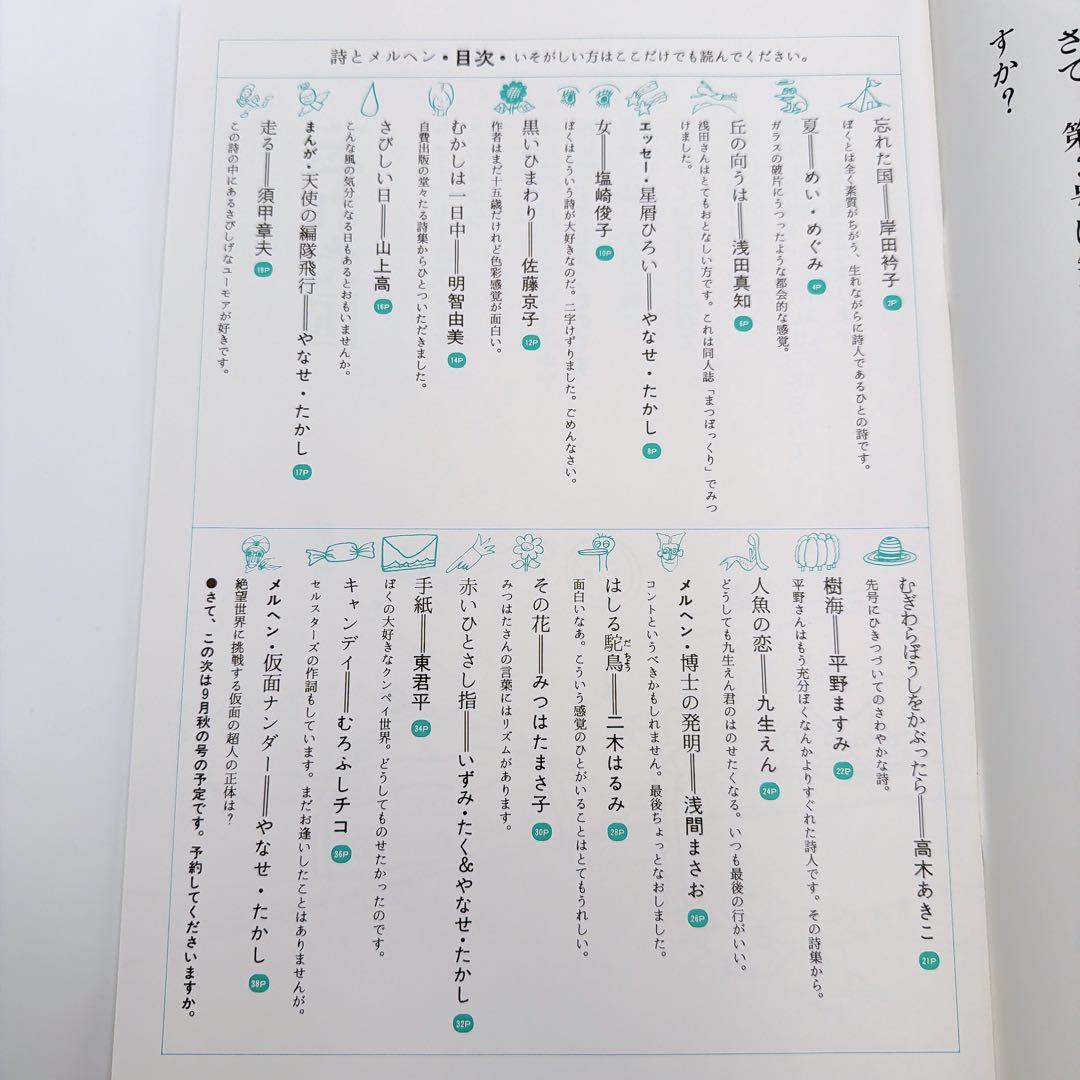 さて
すか?
詩とメルヘン・目次・いそがしい方はここだけでも読んでください。
忘れた国══岸田衿子 2P
ぼくとは全く素質がちがう、生れながらに詩人であるひとの詩です。
夏══めい・めぐみ 4P
ガラスの破片にうつったような都会的な感覚。
丘の向うは══浅田真知 6P
浅田さんはとてもおとなしい方です。これは同人誌「まつぼっくり」でみつ
けました。
エッセー・星屑ひろい══やなせ・たかし 8P
女══塩崎俊子 10P
ぼくはこういう詩が大好きなのだ。二字けずりました。ごめんなさい。
黒いひまわり══佐藤京子 12P
作者はまだ十五歳だけれど色彩感覚が面白い。
むかしは一日中══明智由美 14P
自費出版の堂々たる詩集からひとついただきました。
さびしい日══山上高 16P
こんな風の気分になる日もあるとおもいませんか。
まんが・天使の編隊飛行══やなせ・たかし 17P
走る══須甲章夫 18P
この詩の中にあるさびしげなユーモアが好きです。
むぎわらぼうしをかぶったら══高木あきこ 21P
先号にひきつづいてのさわやかな詩。
樹海══平野ますみ 22P
平野さんはもう充分ぼくなんかよりすぐれた詩人です。その詩集から。
人魚の恋══九生えん 24P
どうしても九生えん君のはのせたくなる。いつも最後の行がいい。
メルヘン・博士の発明══浅間まさお 26P
コントというべきかもしれません。最後ちょっとなおしました。
はしる駝鳥══二木はるみ 28P
だちょう
面白いなあ。こういう感覚のひとがいることはとてもうれしい。
その花══みつはたまさ子 30P
みつはたさんの言葉にはリズムがあります。
赤いひとさし指══いずみ・たく&やなせ・たかし 32P
手紙══東君平 34P
ぼくの大好きなクンペイ世界。どうしてものせたかったのです。
キャンディ══むろふしチコ 36P
セルスターズの作詞もしています。まだお逢いしたことはありませんが。
メルヘン・仮面ナンダー══やなせ・たかし 38P
絶望世界に挑戦する仮面の超人の正体は?
●さて、この次は9月秋の号の予定です。予約してくださいますか。